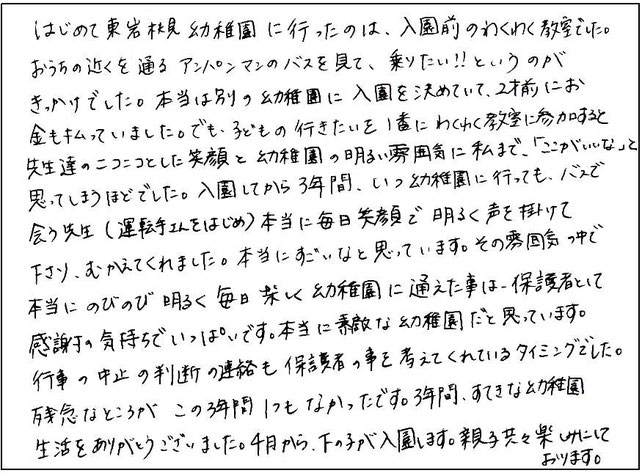 はじめて東岩槻幼稚園に行ったのは、入園前のわくわく教室でした。
おうちの近くを通るアンパンマンのバスを見て、乗りたい!!というのが
きっかけでした。本当は別の幼稚園に入園を決めていて、2才前にお
金も払っていました。でも、子どもの行きたいを1番にわくわく教室に参加すると
先生達のニコニコとした笑顔と幼稚園の明るい雰囲気に私まで、「ここがいいな」と
思ってしまうほどでした。入園してから3年間、いつ幼稚園に行っても、バスで
会う先生(運転手さんをはじめ)本当に毎日笑顔で明るく声を掛けて
下さり、むかえてくれました。本当にすごいなと思っています。その雰囲気の中で
本当にのびのび明るく毎日楽しく幼稚園に通えた事は保護者として
感謝の気持ちでいっぱいです。本当に素敵な幼稚園だと思っています。
行事の中止の判断の連絡も保護者の事を考えてくれているタイミングでした。
残念なところがこの3年間1つもなかったです。3年間、すてきな幼稚園
生活をありがとうございました。4月から、下の子が入園します。親子共々楽しみにして
おります。